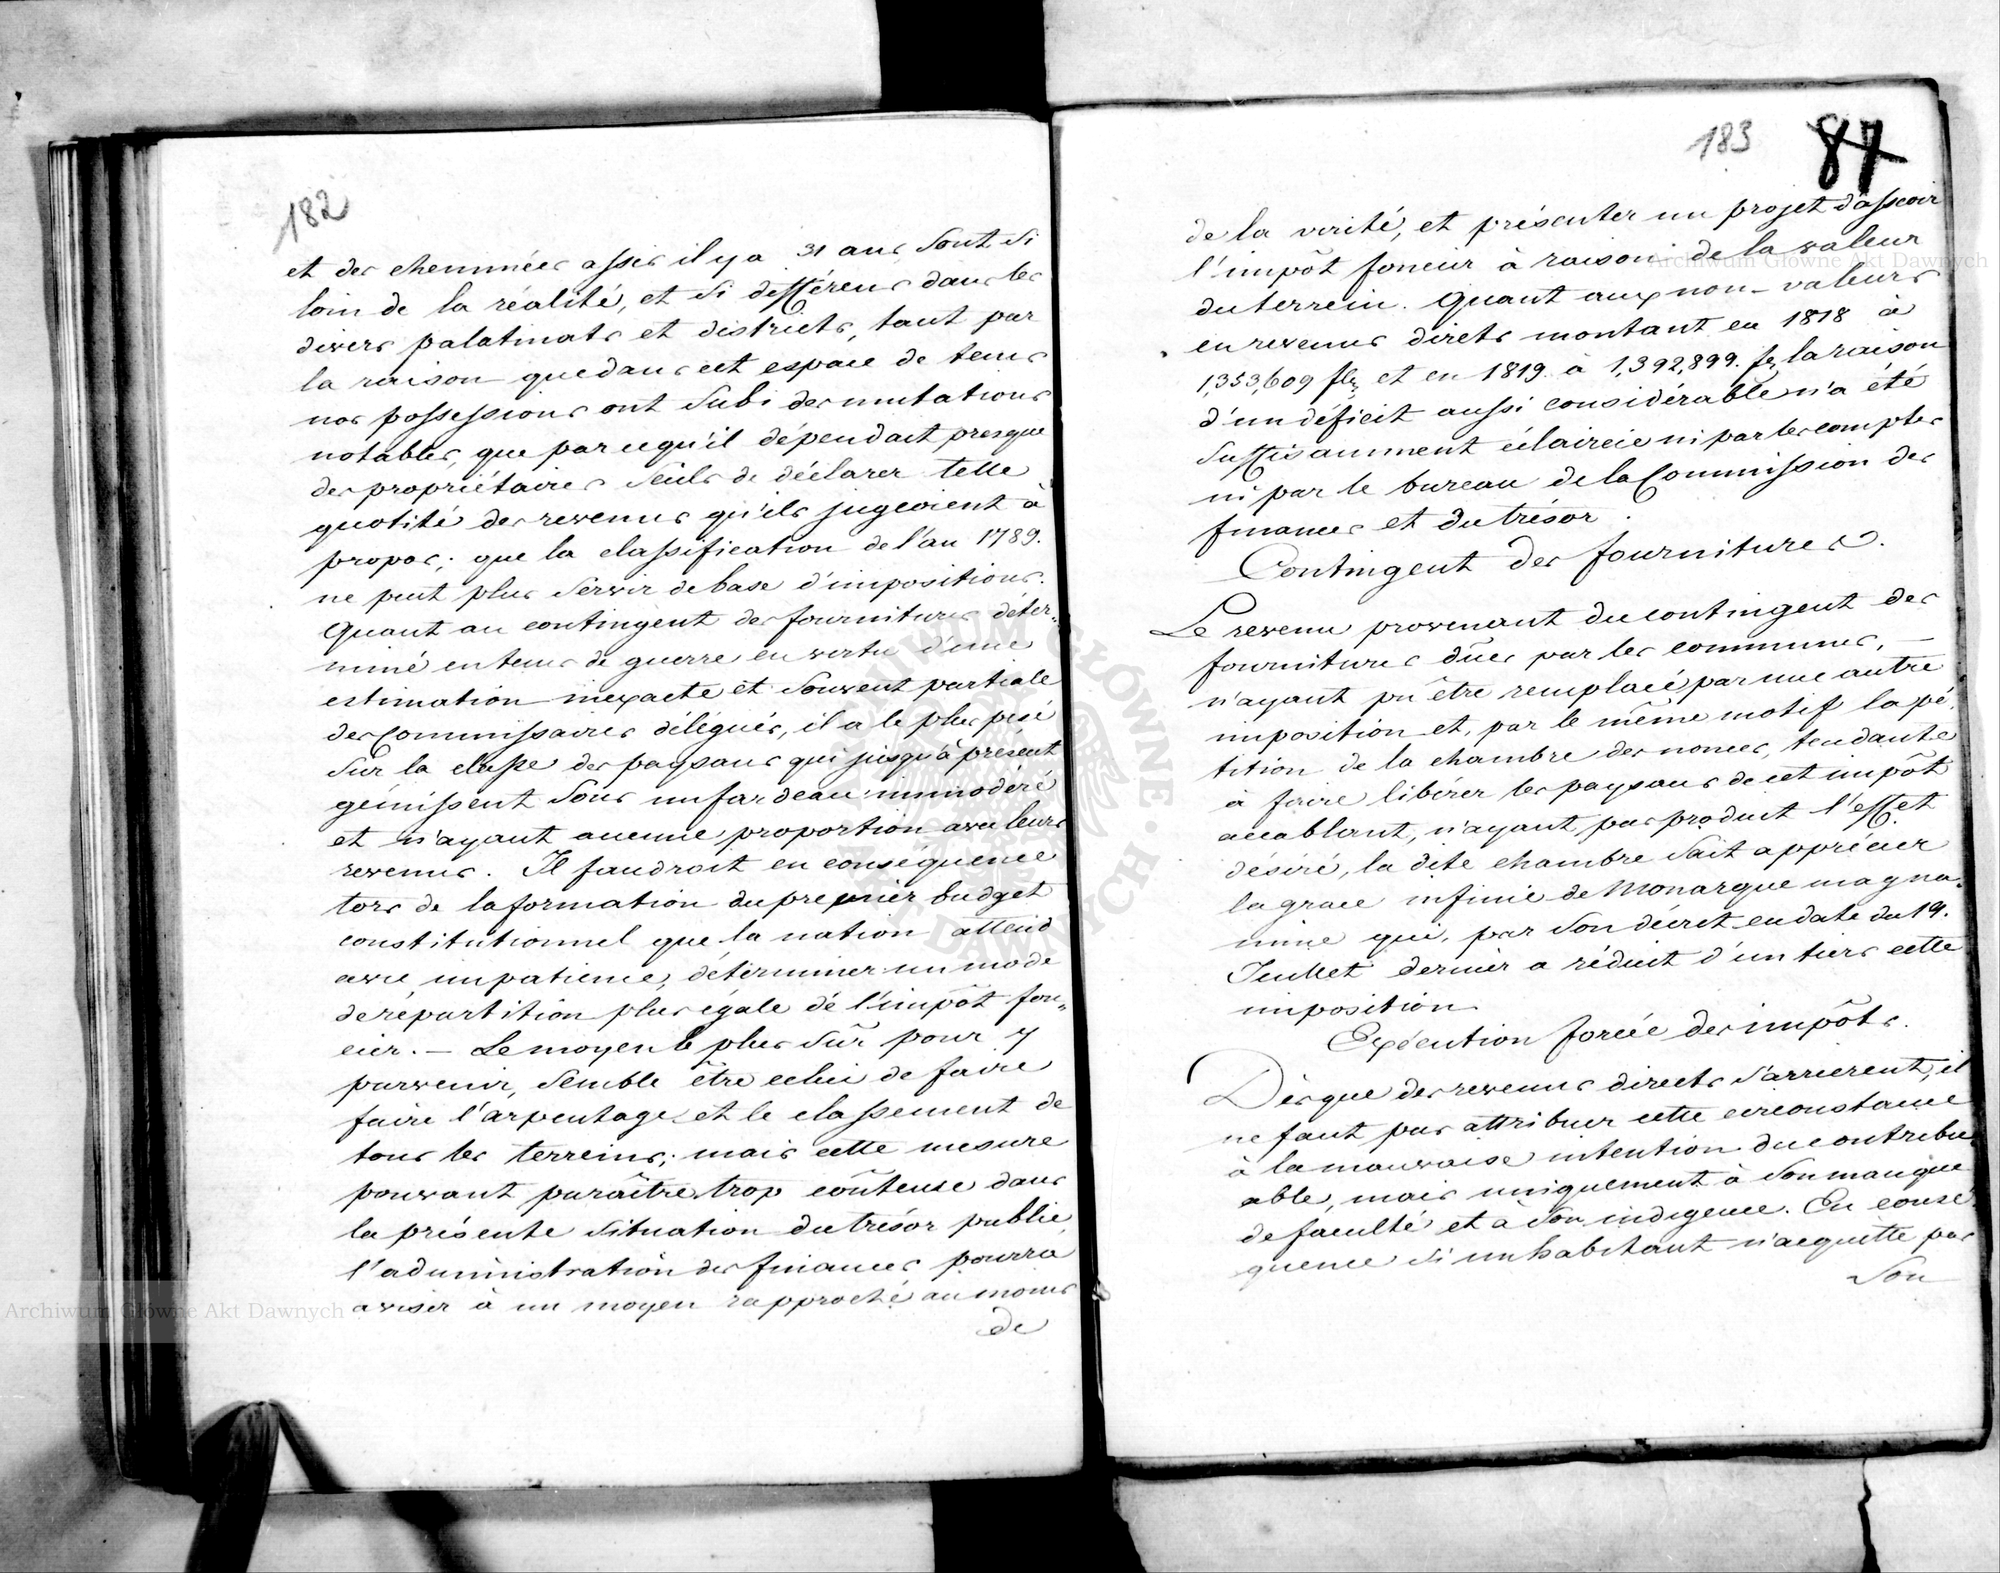 182
et des chemmées assis il y a 31 ans sont si
loin de la réalité, et si différens dans les
divers palatinats et districts, tant par
la raison que dans cet espace de tems
nos possessions ont subi des mutations
notables, que parcequ'il dépendait presque
des propriétaires seuls de déclarer telle
quotité des revenus qu'ils jugeoient à
propos; que la classification de l'an 1789.
ne peut plus servir de base d'impositions.
Quant au contingent des fournitures déter„
miné en tems de guerre en vertu d'une
estimation inexacte et souvent partiale
des Commissaires délégués, il a le plus pesé
sur la classe des paysans qui jusqu'à présent
gémissent sous un fardeau immodéré
et n'ayant aucune proportion avec leurs
revenus. Il faudroit en conséquence
lors de la formation du premier budget
constitutionnel que la nation attend
avec impatience, déterminer un mode
de répartition plus égale de l'impôt fon„
cier. — Le moyen le plus sûr pour y
parvenir, semble être celui de faire
faire l'arpentage et le classement de
tous les terreins; mais cette mesure
pouvant paraître trop coûteuse dans
la présente situation du trésor public,
l'administration des finances pourra
aviser à un moyen rapproché au moins
de
183 87
de la vérité, et présenter un projet d'asseoir
l'impôt foncier à raison de la valeur
du terrein. Quant aux non-valeurs
en revenus directs montant en 1818 à
1,353,609 fl; et en 1819. à 1,392,899. f; la raison
d'un déficit aussi considérable n'a été
suffisamment éclaircie ni par les comptes
ni par le bureau de la Commission des
finances et du trésor.
Contingent des fournitures.
Le revenu provenant du contingent des
fournitures dûes par les communes, —
n'ayant pu être remplacé par une autre
imposition et, par le même motif la pé„
tition de la chambre des nonces, tendante
à faire libérer les paysans de cet impôt
accablant, n'ayant pas produit l'effet
désiré, la dite chambre sait apprécier
la grace infinie de Monarque magna„
nime qui, par son décret en date du 19.
Juillet dernier a réduit d'un tiers cette
imposition
Exécution forcée des impôts.
Dès que des revenus directs s'arrierent, il
ne faut pas attribuer cette circonstance
à la mauvaise intention du contribu
able, mais uniquement à son manque
de faculté et à son indigence. En consé„
quence si un habitant n'acquitte pas
son
Archiwum Główne Akt Dawnych
Archiwum Główne Akt Dawnych